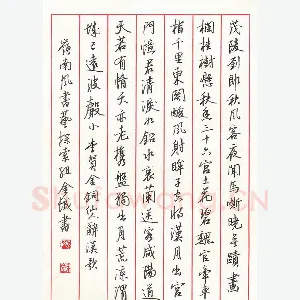 茂陵劉郎秋風客夜聞馬嘶曉無蹟畫
欄桂樹懸秋香三十六宮土花碧魏官牽車
指千里東關酸風射眸子空將漢月出宮
門憶君清淚如鉛水衰蘭送客咸陽道
天若有情天亦老攜盤獨出月荒涼渭
城已遠波聲小李賀金銅仙辭漢歌
嶺南風書藝探索組金城書
Shufawang.cn